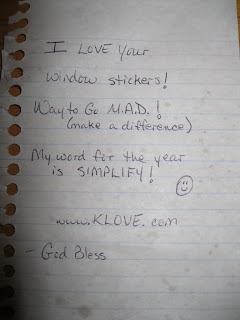 I LOVE Your
window stickers!
Way to Go M.A.D.!
(make a difference)
My word for the year
is SIMPLIFY!
www.KLOVE.com
- God Bless